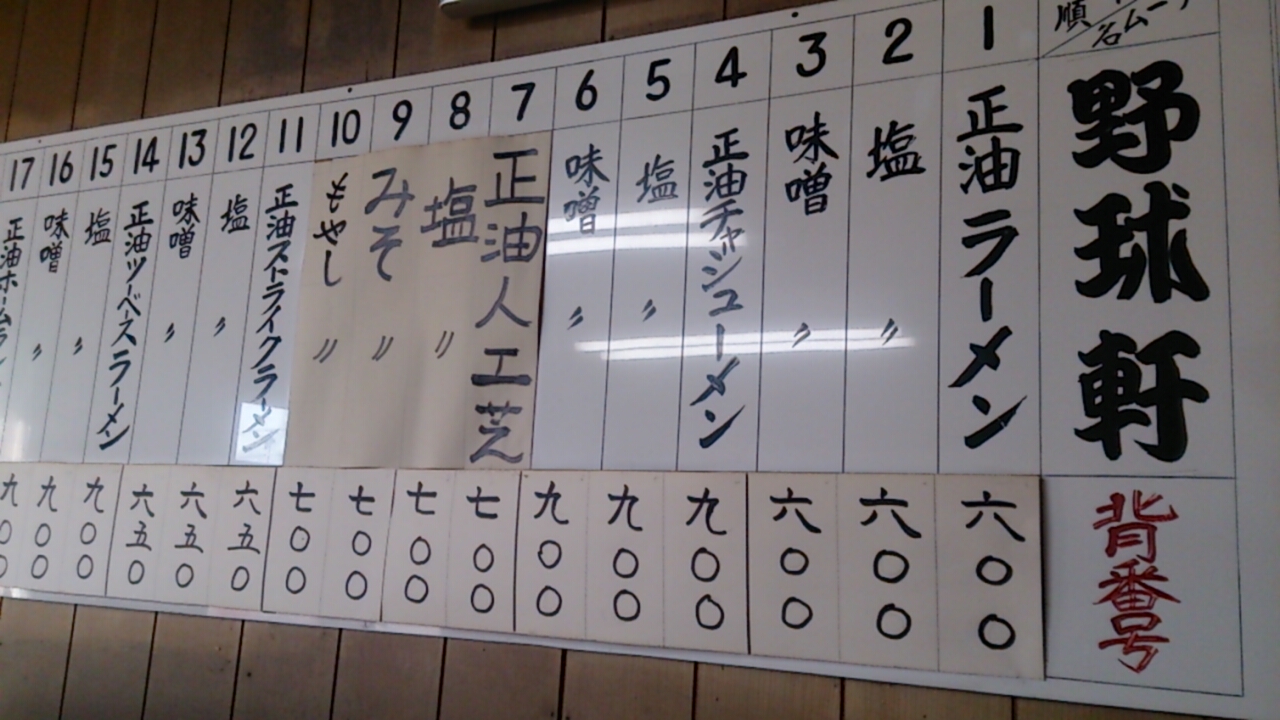 順
名ムーチ
野球軒
背番号
1
正油ラーメン
2
塩 〃
3
味噌 〃
4
正油チャシューメン
5
塩 〃
6
味噌 〃
7
正油人工芝
8
塩 〃
9
みそ 〃
10
もやし 〃
11
正油ストライクラーメン
12
塩 〃
13
味噌 〃
14
正油ツーベースラーメン
15
塩 〃
16
味噌 〃
17
正油ホームラン
六〇〇
六〇〇
六〇〇
九〇〇
九〇〇
九〇〇
七〇〇
七〇〇
七〇〇
七〇〇
六五〇
六五〇
六五〇
九〇〇
九〇〇
九〇〇